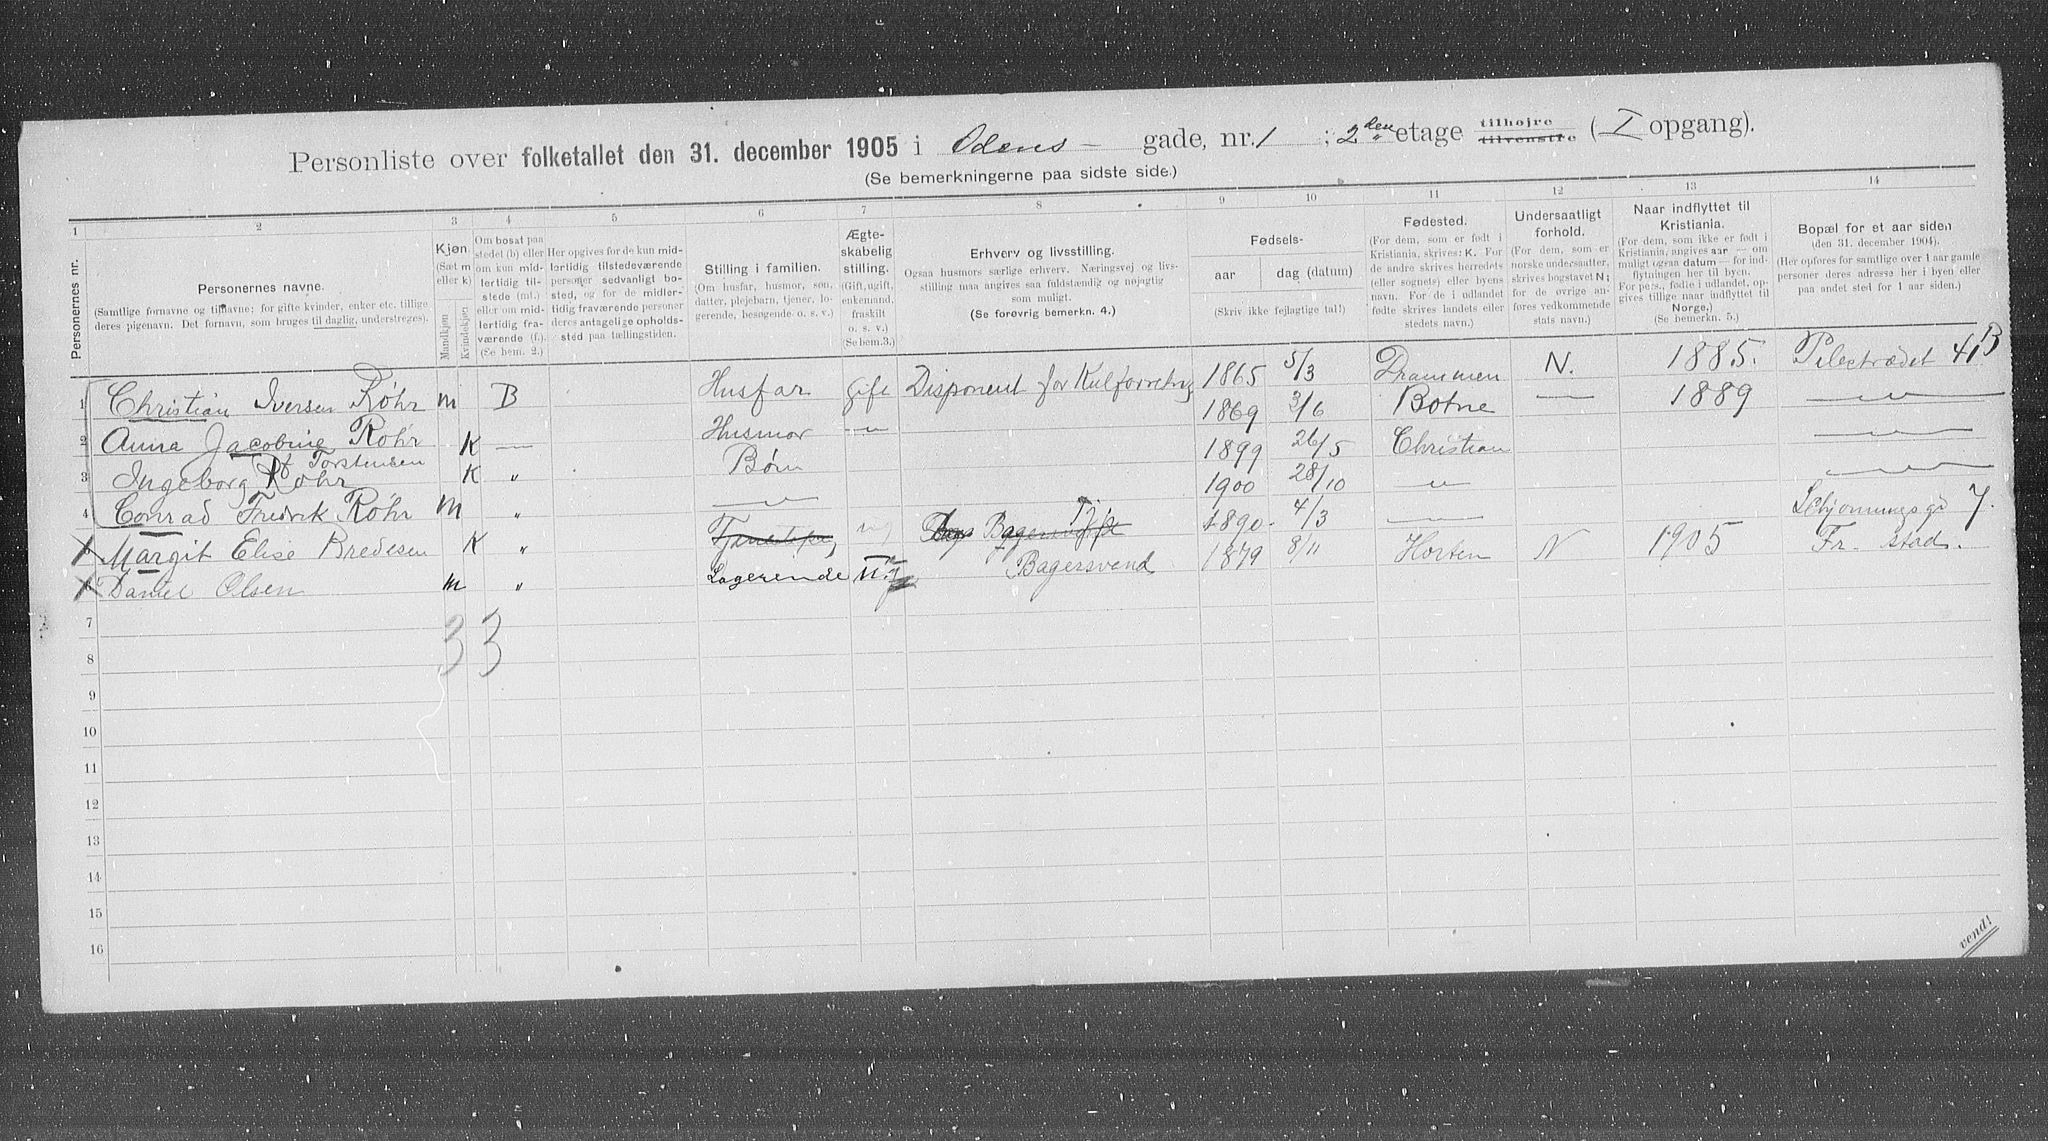 Personliste over folketallet den 31. december 1905 i Odens - gade, nr. 1 ; 2den etage tilhøjre tilvenstre ( I opgang).
(Se bemerkningerne paa sidste side.)
1 2 3 4 5 6 7 8 9 10 11 12 13 14
Personernes nr.
Personernes navne.
(Samtlige fornavne og tilnavne; for gifte kvinder, enker etc. tillige deres pigenavn. Det fornavn, som bruges til daglig, understreges).
Kjøn.
(Sæt m eller k)
Mandkjøn
Kvindekjøn
Om bosat paa stedet (b) eller om kun midlertidig tilstede (mt.) eller om midlertidig fraværende (f.). (Se bem. 2.)
Her opgives for de kun midlertidig tilstedeværende personer sedvanligt bosted, og for de midlertidig fraværende personer deres antagelige opholdssted paa tællingstiden.
Stilling i familien.
(Om husfar, husmor, søn, datter, plejebarn, tjener, logerende, besøgende o. s. v.)
Ægteskabelig stilling.
(Gift, ugift, enkemand, fraskilt o. s. v.) (Se bem. 3.)
Erhverv og livsstilling.
Ogsaa husmors særlige erhverv. Næringsvej og livsstilling maa angives saa fuldstændig og nøjagtig som muligt.
(Se forøvrig bemerkn. 4.)
Fødsels-
aar
dag (datum)
(Skriv ikke fejlagtige tal!)
Fødested.
(For dem, som er født i Kristiania, skrives: K. For de andre skrives herredets (eller sognets) eller byens navn. For de i udlandet fødte skrives landets eller stedets navn.)
Undersaatligt forhold.
(For dem, som er norske undersaatter, skrives bogstavet N; for de øvrige anføres vedkommende stats navn.)
Naar indflyttet til Kristiania.
(For dem, som ikke er født i Kristiania, angives aar — om muligt ogsaa datum — for indflytningen her til byen. For pers., fødte i udlandet, opgives tillige naar indflyttet til Norge.)
(Se bemerkn. 5.)
Bopæl for et aar siden
(den 31. december 1904).
(Her opføres for samtlige over 1 aar gamle personer deres adresse her i byen eller paa andet sted for 1 aar siden.)
1 Christian Iversen Röhr m B Husfar gift Disponent for Kulforretng 1865 5/3 Drammen N. 1885. Pilestrædet 41B
2 Anna Jacobine Röhr K — Husmor —"— 1869 3/6 Botne — 1889 —"—
f. Torstensen
3 Ingeborg Röhr K " Børn 1899 26/5 Christian —"—
4 Conrad Fredrik Röhr m " —"— 1900 28/10 —"— —"—
5 Margit Elise Bredesen K " 1890. 4/3 — 7.
6 Daniel Olsen m " Logerende Bagersvend 1879 8/11 Horten N 1905 Fr. stad.
7 33
8
9
10
11
12
13
14
15
16
vend!